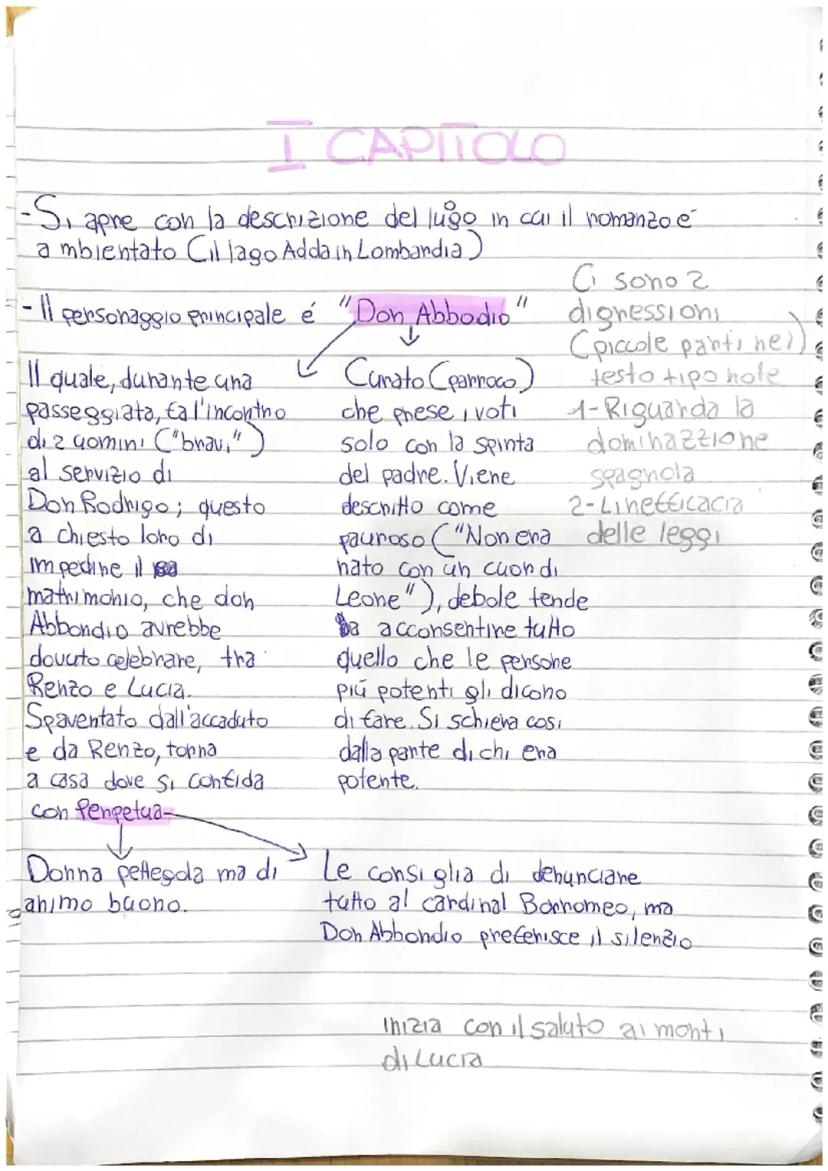 I CAPITOLO
-Si apre con la descrizione del lugo in cui il romanzo é
ambientato (il lago Adda in Lombardia)
-Il personaggio principale é "Don Abbodio"
Il quale, durante una
passeggiata, fa l'incontro
di 2 uomini ("bravi")
al servizio di
Don Rodrigo; questo
a chiesto loro di
impedire il
matrimonio, che don
Abbondio avrebbe
dovuto celebrare, tra
Renzo e Lucia.
Spaventato dall'accaduto
e da Renzo, torna
a casa dove si confida
con Perpetua
Curato (parroco)
che prese i voti
solo con la spinta
del padre. Viene
descritto come
pauroso ("Non era
nato con un cuor di
Leone"), debole tende
a acconsentire tutto
quello che le persone
piú potenti gli dicono
di fare. Si schiera cosi
dalla parte di chi era
potente.
Ci sono 2
digressioni
(piccole parti nel)
testo tipo note
1-Riguarda la
dominazzione
spagnola
2-L'inefficacia
delle leggi
Donna pettegola ma di
animo buono.
Le consiglia di denunciare
tutto al cardinal Borromeo, ma
Don Abbondio preferisce il silenzio
inizia con il saluto ai monti
di Lucia